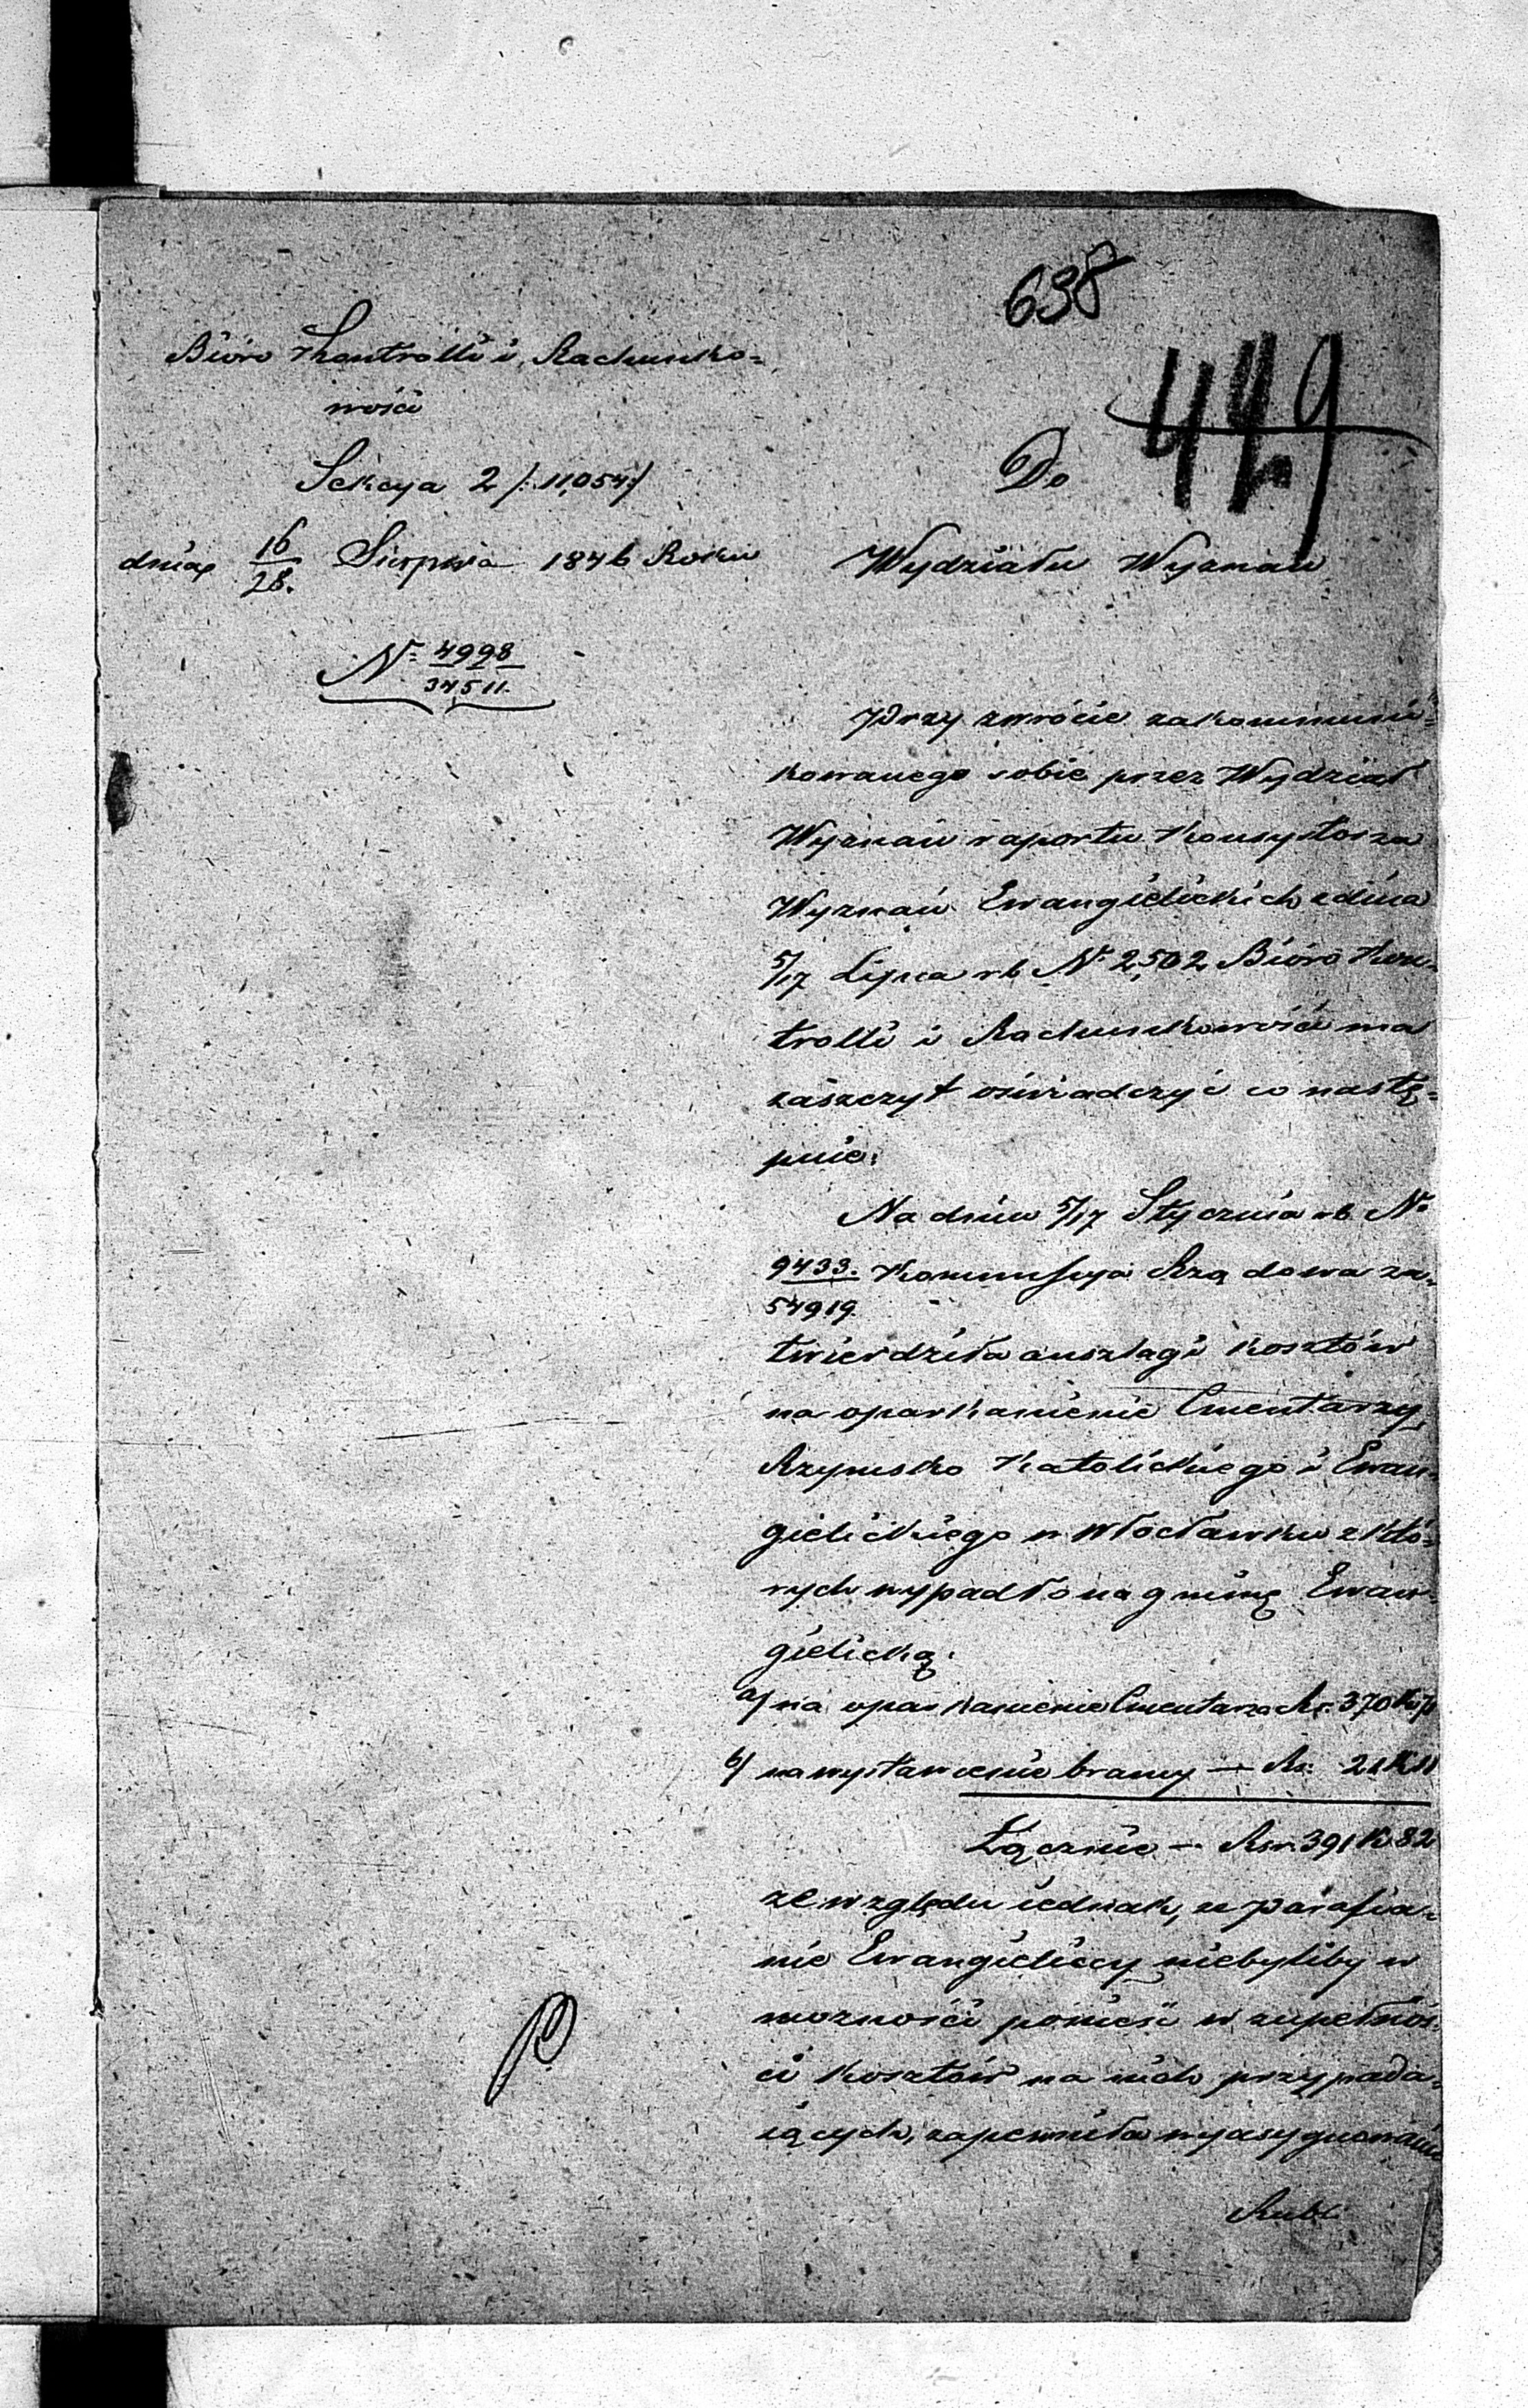 638
449
Biuro Kontrolli i Rachunko=
wości
Sekcya 2 /:11,054:/
dnia 16/28. Sierpnia 1846 Roku
N° 4998/34511.
Do
Wydziału Wyznań
Przy zwrocie zakommuni=
kowanego sobie przez Wydział
Wyznań raportu Konsystorza
Wyznań Ewangielickich z dnia
5/17 Lipca rb N° 2,502 Biuro Kon=
trolli i Rachunkowości ma
zaszczyt oświadczyć co nastę=
pnie:
Na dniu 5/17 Stycznia rb. N°
9433./54919. Kommissya Rządowa za=
twierdziła anszlagi kosztów
na oparkanienie Cmentarzy
Rzymsko Katolickiego i Ewan=
gielickiego w Włocławku z któ=
rych wypadło na gminę Ewan=
gielicką.
a/ na oparkanienie Cmentarza Rs. 370 K 71
b/ na wystawienie bramy — Rs. 21 K 11
Łącznie — Rsr. 391 K 82
ze względu iednak, że parafia=
nie Ewangieliccy niebyliby w
możności ponieść w zupełnoś=
ci kosztów na nich przypada=
iących, zapewniła wyasygnowanie
Rubli